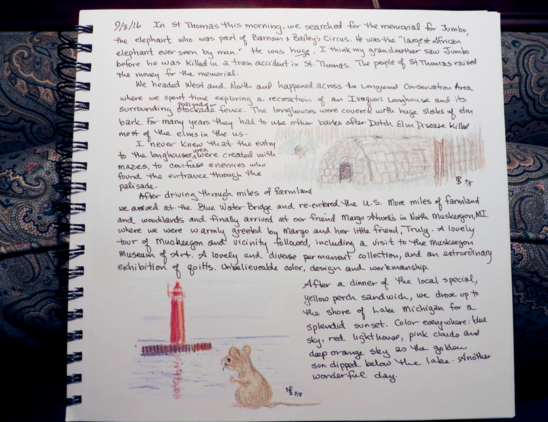 9/8/16 In St Thomas this morning, we searched for the memorial for Jumbo,
the elephant who was part of Barnum & Bailey's Circus. He was the "largest African
elephant ever seen by man." He was huge. I think my grandmother saw Jumbo
before he was killed in a train accident in St Thomas. The people of St Thomas raised
the money for the memorial.
We headed West and North and happened across the Longwood Conservation Area
where we spent time exploring a recreation of an Iroquois Longhouse and its
surrounding palisade or stockade fence. The longhouses were covered with huge slabs of elm
bark. For many years they had to use other barks after Dutch Elm Disease killed
most of the elms in the U.S.
I never knew that the entry
to the longhouse area were created with
mazes, to confuse enemies who
found the entrance through the
palisade.
After driving through miles of farmland
we arrived at the Blue Water Bridge and re-entered the U.S. More miles of farmland
and woodlands and finally arrived at our friend Margo in North Muskegon, MI,
where we were warmly greeted by Margo and her little friend, Truly. A lovely
tour of Muskegon and vicinity followed, including a visit to the Muskegon
Museum of Art. A lovely and diverse permanent collection, and an extrordinary
exhibition of quilts. Unbelieveable color, design and workmanship.
After a dinner of the local special,
yellow perch sandwich, we drove up to
the shore of Lake Michigan for a
splendid sunset. Color everywhere: blue
sky, red lighthouse, pink clouds and
deep orange sky as the golden
sun dipped below the lake. Another
wonderful day.